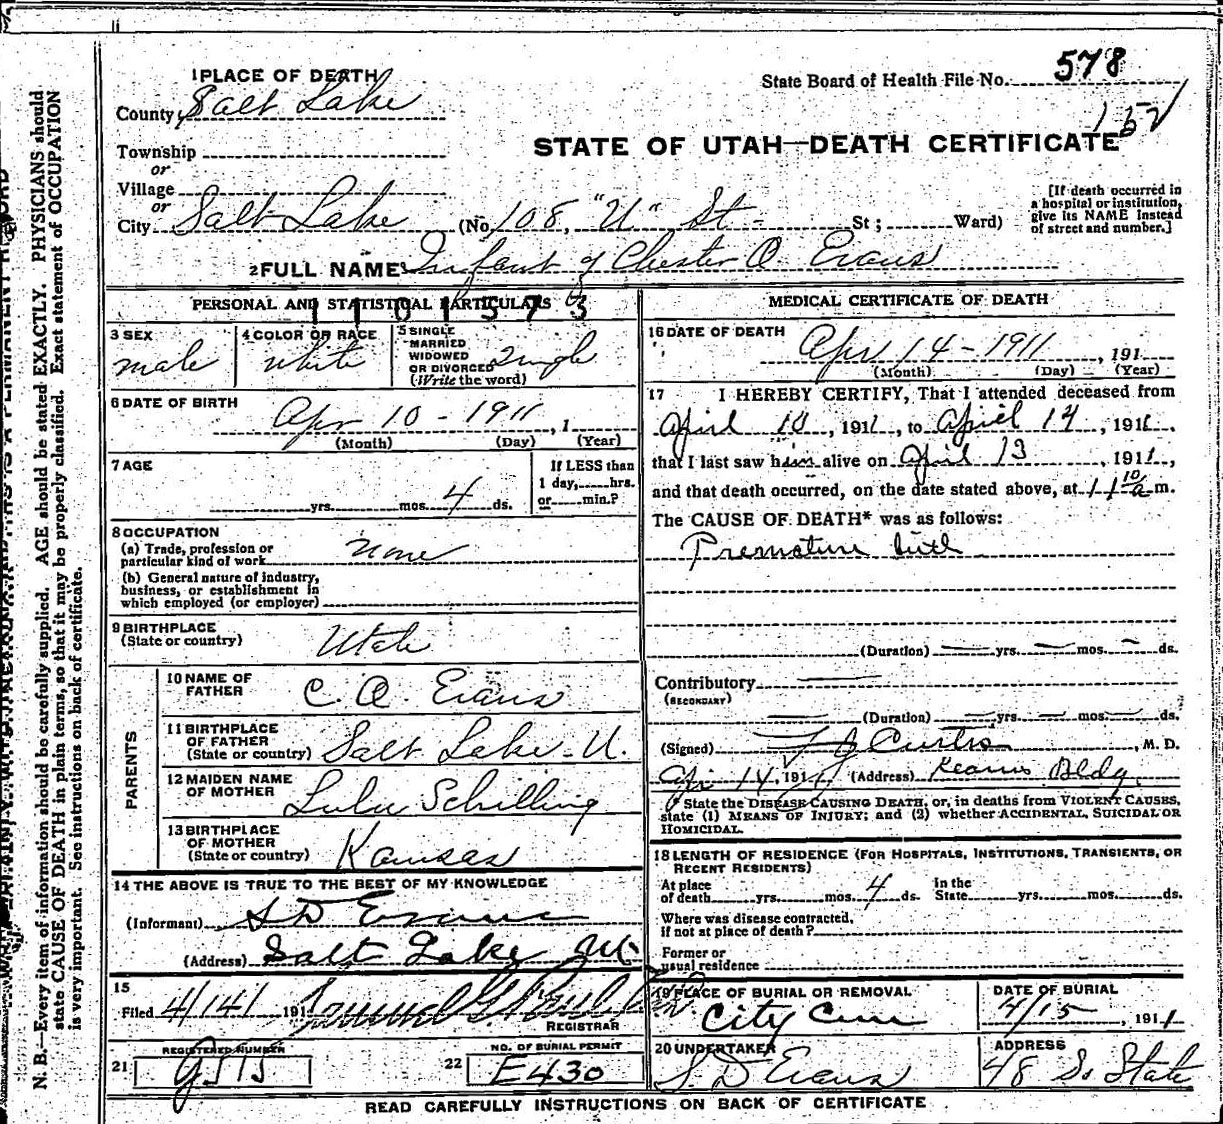 1 PLACE OF DEATH
State Board of Health File No. 578
County Salt Lake
152
STATE OF UTAH—DEATH CERTIFICATE
Township
or
Village
or
City Salt Lake (No. 108, "U" St - St ; Ward)
[If death occurred in a hospital or institution, give its NAME instead of street and number.]
2 FULL NAME Infant of Chester Q Evans
PERSONAL AND STATISTICAL PARTICULARS
1101573
3 SEX
male
4 COLOR OR RACE
white
5 SINGLE
MARRIED
WIDOWED
OR DIVORCED
(Write the word)
Single
6 DATE OF BIRTH
Apr 10 - 1911, 1
(Month) (Day) (Year)
7 AGE
yrs. mos. 4 ds.
If LESS than
1 day, hrs.
or min.?
8 OCCUPATION
(a) Trade, profession or
particular kind of work None
(b) General nature of industry,
business, or establishment in
which employed (or employer)
9 BIRTHPLACE
(State or country) Utah
PARENTS
10 NAME OF
FATHER C. Q. Evans
11 BIRTHPLACE
OF FATHER
(State or country) Salt Lake - U.
12 MAIDEN NAME
OF MOTHER Lulu Schilling
13 BIRTHPLACE
OF MOTHER
(State or country) Kansas
14 THE ABOVE IS TRUE TO THE BEST OF MY KNOWLEDGE
(Informant) S D Evans
(Address) Salt Lake Ut
15
Filed 4/14/ 191
REGISTRAR
21 REGISTERED NUMBER
22 NO. OF BURIAL PERMIT
E430
MEDICAL CERTIFICATE OF DEATH
16 DATE OF DEATH
Apr 14 - 1911, 191
(Month) (Day) (Year)
17 I HEREBY CERTIFY, That I attended deceased from
April 10, 1911, to April 14, 1911,
that I last saw him alive on April 13, 1911,
and that death occurred, on the date stated above, at 11 10 a m.
The CAUSE OF DEATH* was as follows:
Premature birth
(Duration) — yrs. — mos. — ds.
Contributory —
(SECONDARY)
— (Duration) — yrs. — mos. — ds.
(Signed) F J Curtis, M. D.
Apr 14, 1911 (Address) Kearns Bldg.
* State the DISEASE CAUSING DEATH, or, in deaths from VIOLENT CAUSES,
state (1) MEANS OF INJURY; and (2) whether ACCIDENTAL, SUICIDAL OR
HOMICIDAL.
18 LENGTH OF RESIDENCE (FOR HOSPITALS, INSTITUTIONS, TRANSIENTS, OR
RECENT RESIDENTS)
At place
of death yrs. mos. 4 ds.
In the
State yrs. mos. ds.
Where was disease contracted,
if not at place of death?
Former or
usual residence
19 PLACE OF BURIAL OR REMOVAL
City Cem
DATE OF BURIAL
4/15, 1911
20 UNDERTAKER
S. D Evans
ADDRESS
48 So State
READ CAREFULLY INSTRUCTIONS ON BACK OF CERTIFICATE
N. B.—Every item of information should be carefully supplied. AGE should be stated EXACTLY. PHYSICIANS should
state CAUSE OF DEATH in plain terms, so that it may be properly classified. Exact statement of OCCUPATION
is very important. See instructions on back of certificate.